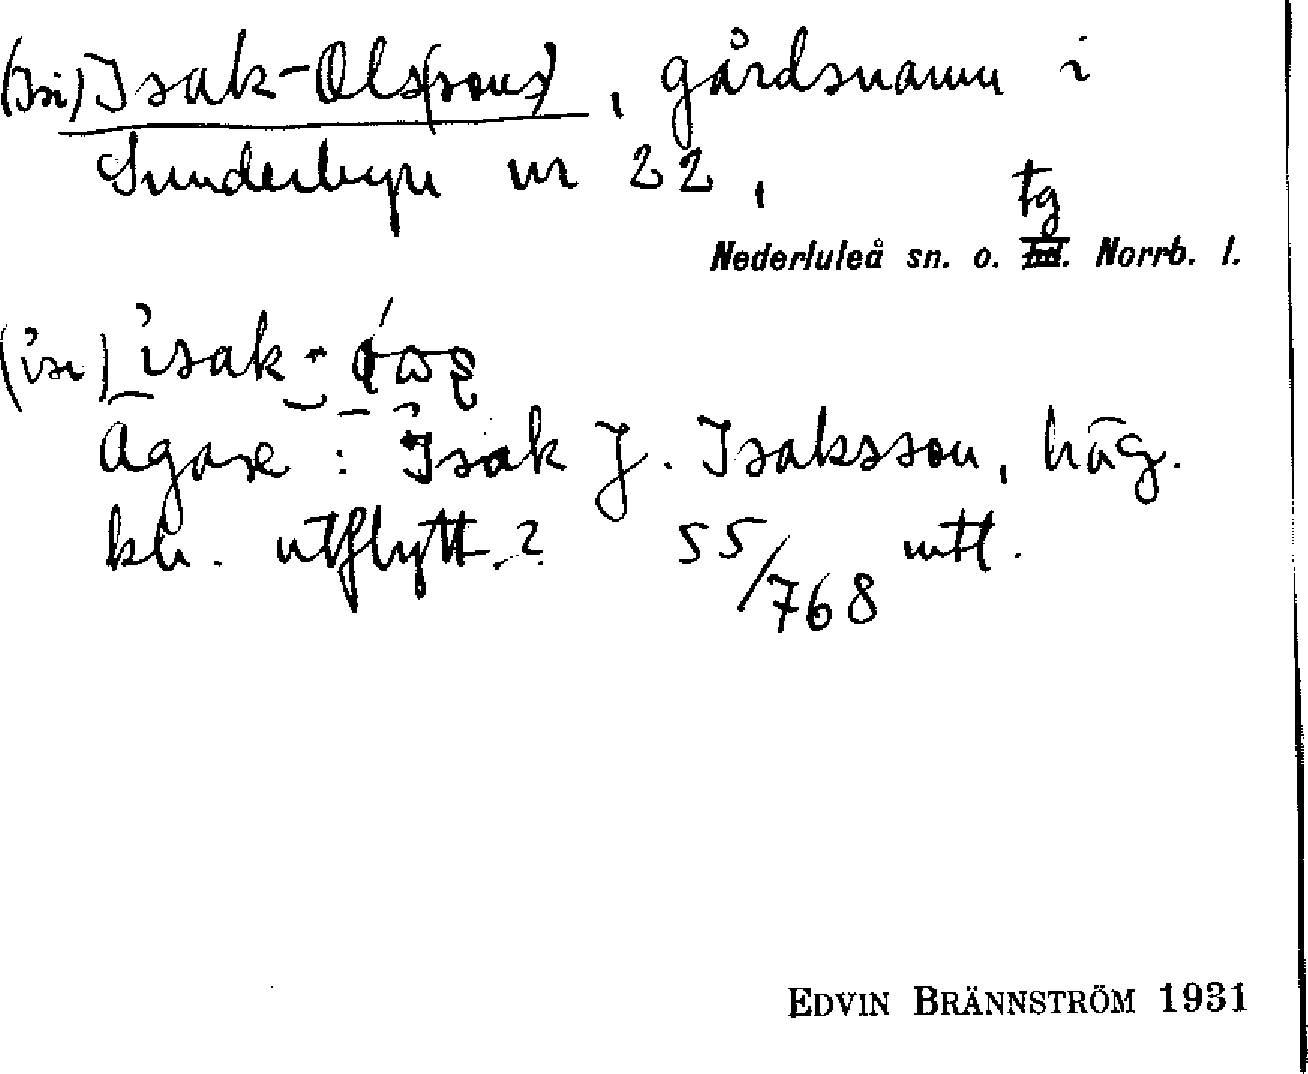 (Isi) Isak-Ols(sons), gårdsnamn i
Sunderbyn nr 22,
tg
Nederluleå sn. o. Norrb. l.
isak-
Ägare: Isak J. Isaksson, häg.
bh. utflytt.? 55/768 mtl.
EDVIN BRÄNNSTRÖM 1931